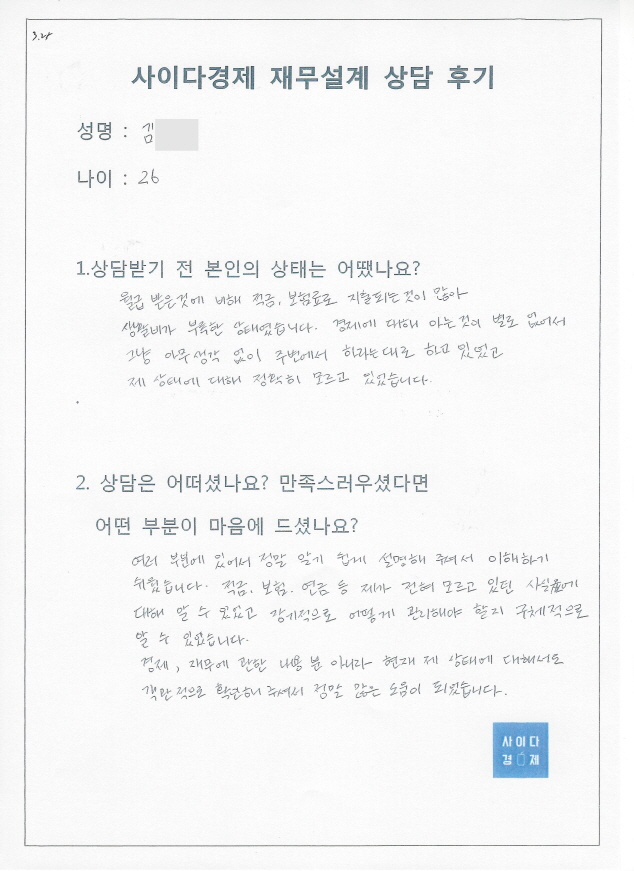 3.24
사이다경제 재무설계 상담 후기
성명 : 김
나이 : 26
1.상담받기 전 본인의 상태는 어땠나요?
월급 받은것에 비해 적금, 보험료로 지출되는것이 많아
생활비가 부족한 상태였습니다. 경제에 대해 아는것이 별로 없어서
그냥 아무생각 없이 주변에서 하라는대로 하고 있었고
제 상태에 대해 정확히 모르고 있었습니다.
2. 상담은 어떠셨나요? 만족스러우셨다면
어떤 부분이 마음에 드셨나요?
여러 부분에 있어서 정말 알기 쉽게 설명해 주셔서 이해하기
쉬웠습니다. 적금, 보험, 연금 등 제가 전혀 모르고 있던 사실들에
대해 알 수 있었고 장기적으로 어떻게 관리해야 할지 구체적으로
알 수 있었습니다.
경제, 재무에 관한 내용 뿐 아니라 현재 제 상태에 대해서도
객관적으로 확인해 주셔서 정말 많은 도움이 되었습니다.
사이다
경제